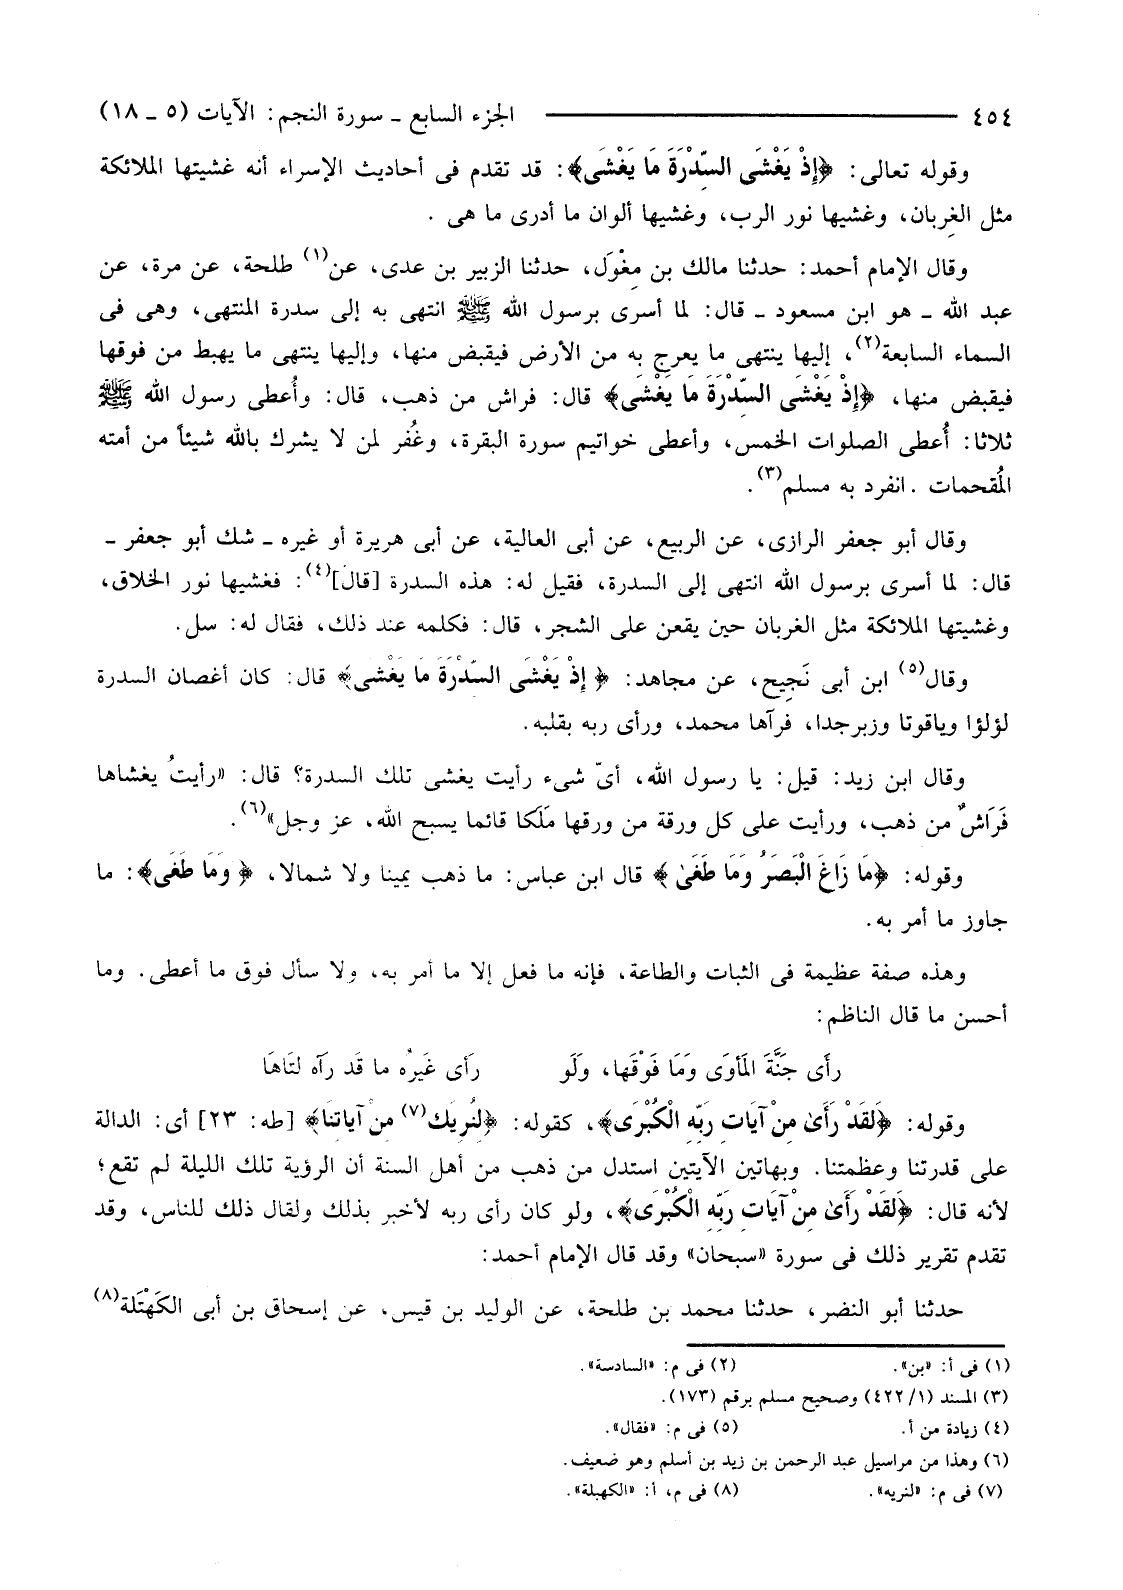 ٤٥٤ الجزء السابع ـ سورة النجم: الآيات (٥ ـ ١٨)
وقوله تعالى: ﴿إِذْ يَغْشَى السِّدْرَةَ مَا يَغْشَى﴾: قد تقدم فى أحاديث الإسراء أنه غشيتها الملائكة
مثل الغِربان، وغشيها نور الرب، وغشيها ألوان ما أدرى ما هى .
وقال الإمام أحمد: حدثنا مالك بن مِغْوَل، حدثنا الزبير بن عدى، عن(١) طلحة، عن مرة، عن
عبد الله ـ هو ابن مسعود ـ قال: لما أسرى برسول الله ﷺ انتهى به إلى سدرة المنتهى، وهى فى
السماء السابعة(٢)، إليها ينتهى ما يعرج به من الأرض فيقبض منها، وإليها ينتهى ما يهبط من فوقها
فيقبض منها، ﴿إِذْ يَغْشَى السِّدْرَةَ مَا يَغْشَى﴾ قال: فراش من ذهب، قال: وأُعطى رسول الله ﷺ
ثلاثا: أُعطى الصلوات الخمس، وأعطى خواتيم سورة البقرة، وغُفر لمن لا يشرك بالله شيئاً من أمته
المُقحمات .انفرد به مسلم(٣).
وقال أبو جعفر الرازى، عن الربيع، عن أبى العالية، عن أبى هريرة أو غيره ـ شك أبو جعفر ـ
قال: لما أسرى برسول الله انتهى إلى السدرة، فقيل له: هذه السدرة [قال](٤): فغشيها نور الخلاق،
وغشيتها الملائكة مثل الغربان حين يقعن على الشجر، قال: فكلمه عند ذلك، فقال له: سل.
وقال(٥) ابن أبى نَجِيح، عن مجاهد: ﴿ إِذْ يَغْشَى السِّدْرَةَ مَا يَغْشَى﴾ قال: كان أغصان السدرة
لؤلؤا وياقوتا وزبرجدا، فرآها محمد، ورأى ربه بقلبه.
وقال ابن زيد: قيل: يا رسول الله، أىّ شىء رأيت يغشى تلك السدرة؟ قال: «رأيتُ يغشاها
فَرَاشٌ من ذهب، ورأيت على كل ورقة من ورقها مَلَكا قائما يسبح الله، عز وجل»(٦).
وقوله: ﴿مَا زَاغَ الْبَصَرُ وَمَا طَغَىٰ ﴾ قال ابن عباس: ما ذهب يمينا ولا شمالا، ﴿ وَمَا طَغَى﴾: ما
جاوز ما أمر به.
وهذه صفة عظيمة فى الثبات والطاعة، فإنه ما فعل إلا ما أمر به، ولا سأل فوق ما أعطى. وما
أحسن ما قال الناظم:
رأى جَنَّةَ المَأوَى وَمَا فَوْقَها، وَلَو رَأى غَيرُه ما قَد رآه لتَاهَا
وقوله: ﴿لَقَدْ رَأَىٰ مِنْ آيَاتِ رَبِّهِ الْكُبْرَى﴾، كقوله: ﴿لنُرِيَك(٧) من آياتنا﴾ [طه: ٢٣] أى: الدالة
على قدرتنا وعظمتنا. وبهاتين الآيتين استدل من ذهب من أهل السنة أن الرؤية تلك الليلة لم تقع؛
لأنه قال: ﴿لَقَدْ رَأَىٰ مِنْ آيَاتِ رَبِّهِ الْكُبْرَى﴾، ولو كان رأى ربه لأخبر بذلك ولقال ذلك للناس، وقد
تقدم تقرير ذلك فى سورة «سبحان» وقد قال الإمام أحمد:
حدثنا أبو النضر، حدثنا محمد بن طلحة، عن الوليد بن قيس، عن إسحاق بن أبى الكَهْتَلة(٨)
(١) فى أ: «بن». (٢) فى م: «السادسة».
(٣) المسند (٤٢٢/١) وصحيح مسلم برقم (١٧٣).
(٤) زيادة من أ. (٥) فى م: «فقال».
(٦) وهذا من مراسيل عبد الرحمن بن زيد بن أسلم وهو ضعيف.
(٧) فى م: «لنريه». (٨) فى م، أ: «الكهبلة».